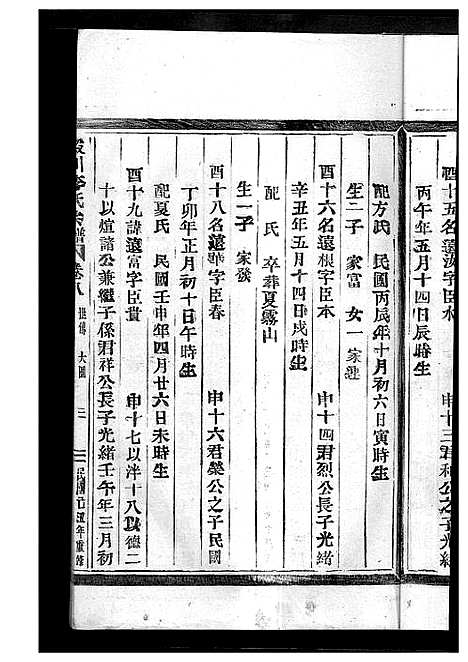 酉十五名遠 字臣木 申十三君和公之子光緒
丙午年五月十四日辰時生
配方氏 民國丙辰年十月初六日寅時生
生二子 家富 女一家蓮
酉十六名遠根字臣本 申十四君烈公長子光緒
辛丑年五月十四日戌時生
配 氏 卒葬夏霧山
生一子 家發
酉十八名遠 字臣春 申十六君榮公之子民國
丁卯年正月初十日午時生
配夏氏 民國壬申年四月廿六日未時生
酉十九諱遠富字臣貴 申十七以泮十八以德二
十以煊諸公兼繼子係君祥公長子光緒壬午年三月初
川李氏宗譜 卷八 大圖 三 民國 丑年重修